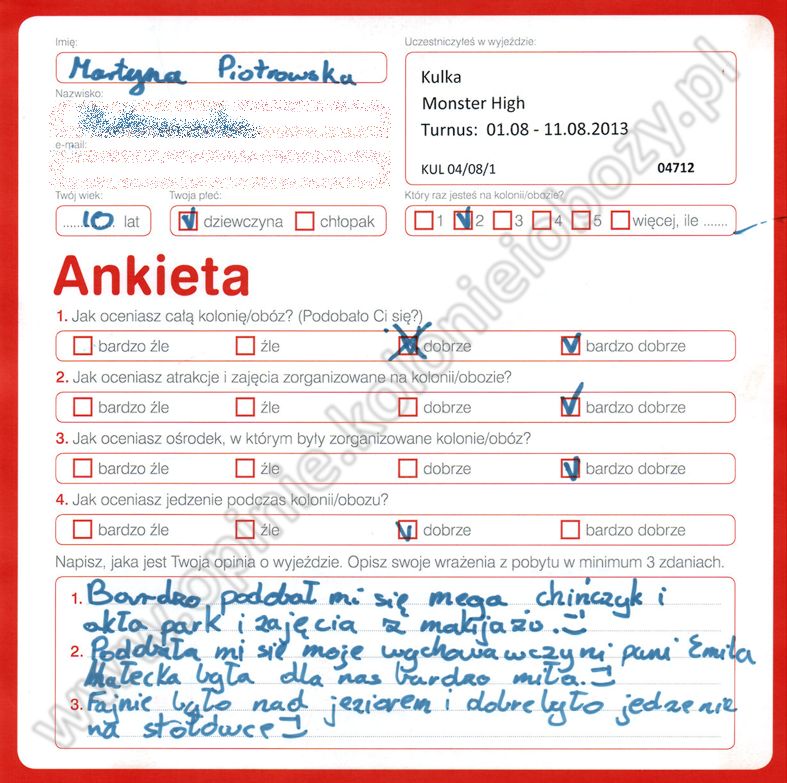 Imię:
Martyna Piotrowska
Nazwisko:
e-mail:
Uczestniczyłeś w wyjeździe:
Kulka
Monster High
Turnus: 01.08 - 11.08.2013
KUL 04/08/1 04712
Twój wiek:
......10. lat
Twoja płeć:
dziewczyna chłopak
Który raz jesteś na kolonii/obozie?
1 2 3 4 5 więcej, ile .......
Ankieta
1. Jak oceniasz całą kolonię/obóz? (Podobało Ci się?)
bardzo źle źle dobrze bardzo dobrze
2. Jak oceniasz atrakcje i zajęcia zorganizowane na kolonii/obozie?
bardzo źle źle dobrze bardzo dobrze
3. Jak oceniasz ośrodek, w którym były zorganizowane kolonie/obóz?
bardzo źle źle dobrze bardzo dobrze
4. Jak oceniasz jedzenie podczas kolonii/obozu?
bardzo źle źle dobrze bardzo dobrze
Napisz, jaka jest Twoja opinia o wyjeździe. Opisz swoje wrażenia z pobytu w minimum 3 zdaniach.
1. Bardzo podobał mi się mega chińczyk i
akła park i zajęcia z makijażu. :)
2. Podobała mi się moje wychowawczyni pani Emila
Małecka była dla nas bardzo miła. :)
3. Fajnie było nad jeziorem i dobre było jedzenie
na stołówce :)
www.opinie.kolonieiobozy.pl